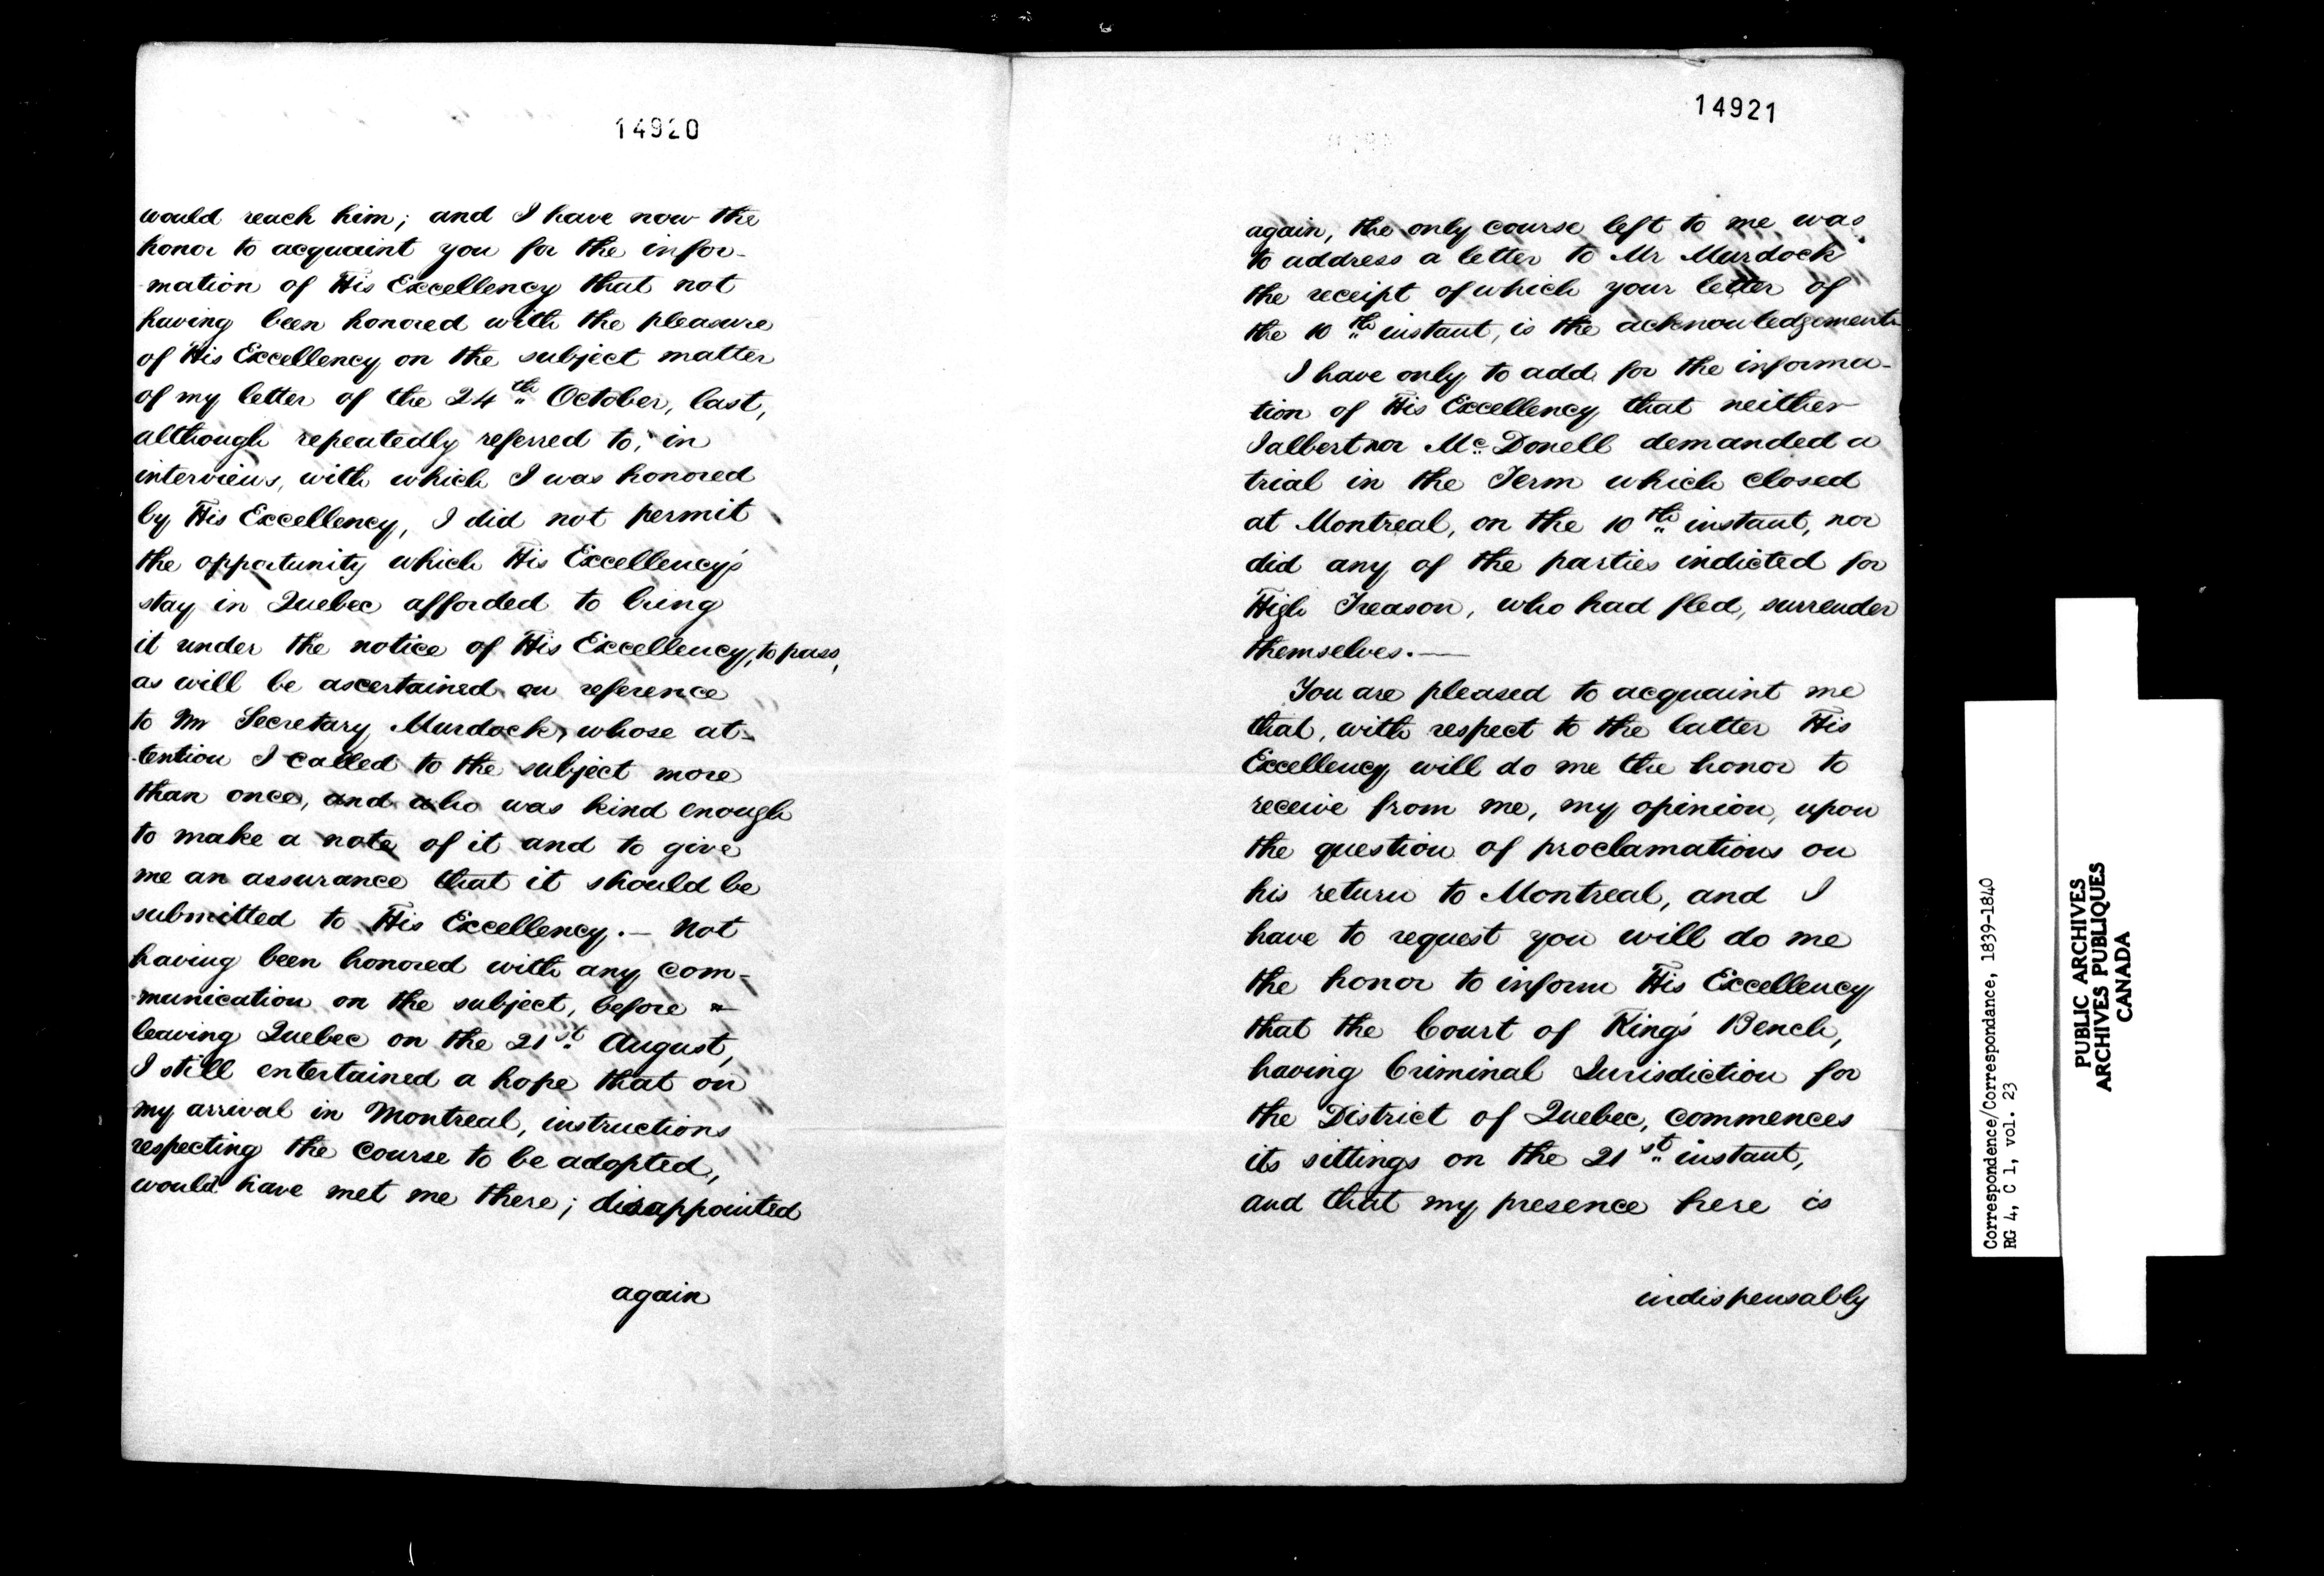 14920
would reach him; and I have now the
honor to acquaint you for the infor-
mation of His Excellency that not
having been honored with the pleasure
of His Excellency on the subject matter
of my letter of the 24th October, last,
although repeatedly referred to, in
interviews, with which I was honored
by His Excellency, I did not permit
the opportunity which His Excellency's
stay in Quebec afforded to bring
it under the notice of His Excellency, to pass,
as will be ascertained on reference
to Mr Secretary Murdock, whose at-
tention I called to the subject more
than once, and who was kind enough
to make a note of it and to give
me an assurance that it should be
submitted to His Excellency.— Not
having been honored with any com-
munication on the subject, before
leaving Quebec on the 21st August,
I still entertained a hope that on
my arrival in Montreal, instructions
respecting the course to be adopted,
would have met me there; disappointed
again
14921
again, the only course left to me was
to address a letter to Mr Murdock
the receipt of which your letter of
the 10th instant, is the acknowledgement.
I have only to add for the informa-
tion of His Excellency that neither
Jalbert nor McDonell demanded a
trial in the Term which closed
at Montreal, on the 10th instant, nor
did any of the parties indicted for
High Treason, who had fled, surrender
themselves.—
You are pleased to acquaint me
that, with respect to the latter His
Excellency will do me the honor to
receive from me, my opinion, upon
the question of proclamations on
his return to Montreal, and I
have to request you will do me
the honor to inform His Excellency
that the Court of King's Bench,
having Criminal Jurisdiction for
the District of Quebec, commences
its sittings on the 21st instant,
and that my presence here is
indispensably
Correspondence/Correspondance, 1839-1840
RG 4, C 1, vol. 23
PUBLIC ARCHIVES
ARCHIVES PUBLIQUES
CANADA